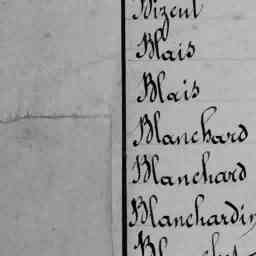 Bizeul
Blais
Blais
Blanchard
Blanchard
Blanchardin